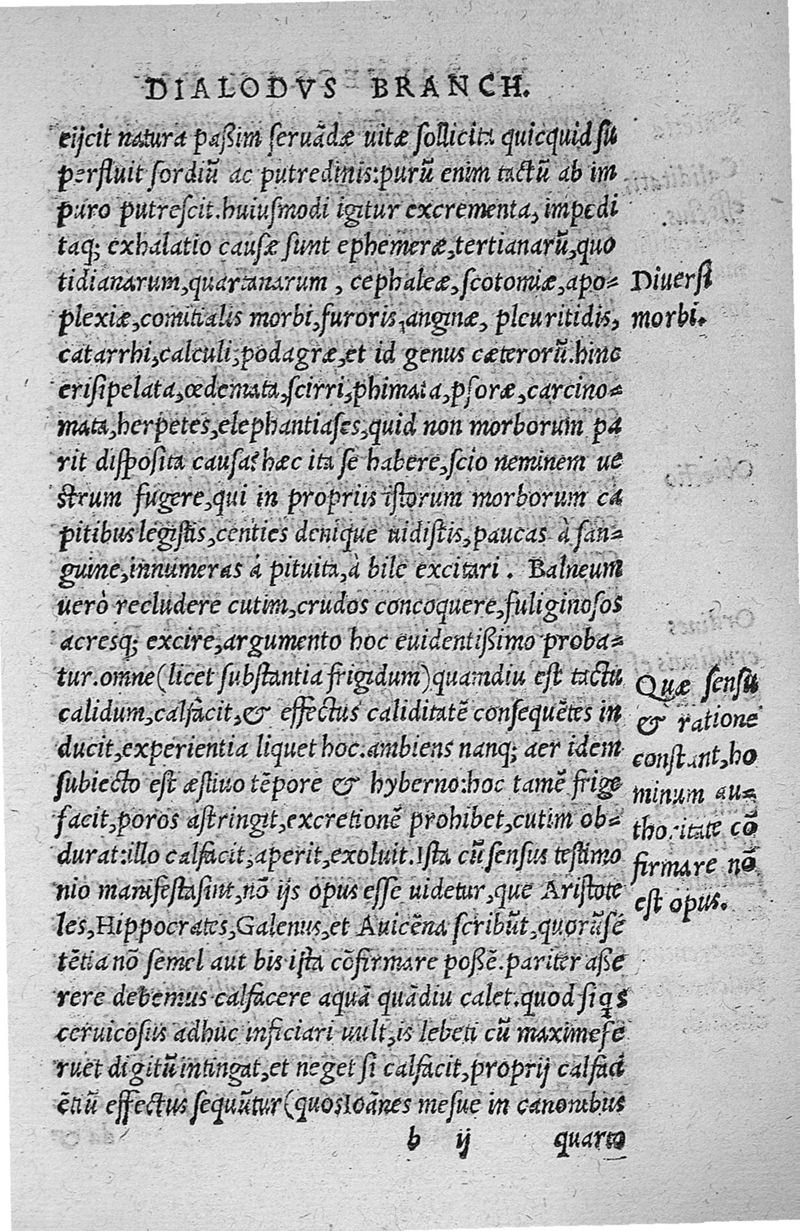 DIALODVS BRANCH.
eijcit natura paßim seruãdæ uitæ sollicita quicquid su
perfluit sordiũ ac putredinis:purũ enim tactũ ab im
puro putrescit.huiusmodi igitur excrementa, impedi
taq; exhalatio causæ sunt ephemeræ,tertianarũ,quo
tidianarum,quartanarum , cephaleæ,scotomiæ,apo=
plexiæ,comitialis morbi,furoris,anginæ, pleuritidis,
catarrhi,calculi,podagræ,et id genus cæterorũ.hinc
erisipelata,œdemata,scirri,phimata,psoræ,carcino=
mata,herpetes,elephantiases,quid non morborum pa
rit disposita causa?hæc ita se habere,scio neminem ue
strum fugere,qui in propriis istorum morborum ca
pitibus legistis,centies denique uidistis,paucas à san=
guine,innumeras à pituita,à bile excitari . Balneum
uerò recludere cutim,crudos concoquere,fuliginosos
acresq; excire,argumento hoc euidentißimo proba=
tur.omne(licet substantia frigidum)quamdiu est tactu
calidum,calfacit,& effectus caliditatẽ consequẽtes in
ducit,experientia liquet hoc.ambiens nanq; aer idem
subiecto est æstiuo tẽpore & hyberno:hoc tamẽ frige
facit,poros astringit,excretionẽ prohibet,cutim ob=
durat:illo calfacit,aperit,exoluit.Ista cũ sensus testimo
nio manifesta sint,nõ ijs opus esse uidetur,que Aristote
les,Hippocrates,Galenus,et Auicẽna scribũt,quorũ sẽ
tẽtia nõ semel aut bis ista cõfirmare possẽ.pariter aße
rere debemus calfacere aquã quãdiu calet.quod si qs
ceruicosus adhuc inficiari uult,is lebeti cũ maxime fe
ruet digitũ intingat,et neget si calfacit,proprij calfaci
ẽtiũ effectus sequũtur(quos Ioãnes mesue in canonibus
b ij quarto
Diuersi
morbi.
Quæ sensu
& ratione
constant,ho
minum au=
thoritate cõ
firmare nõ
est opus.